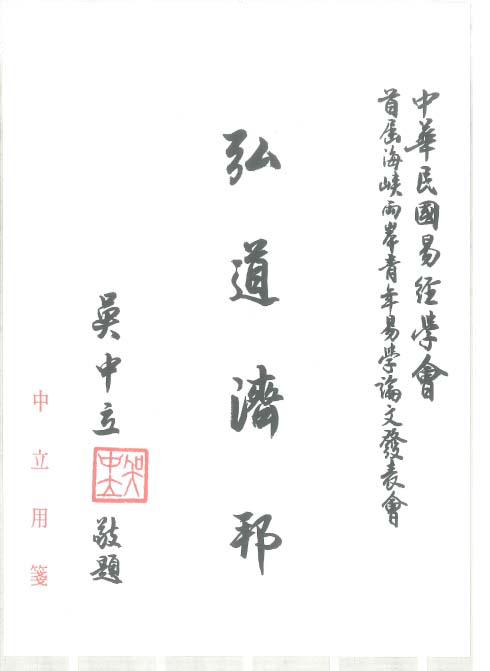 中華民國易經學會
首屆海峽兩岸青年易學論文發表會
弘道濟邦
吳中立
吳中立
敬題
中立用箋